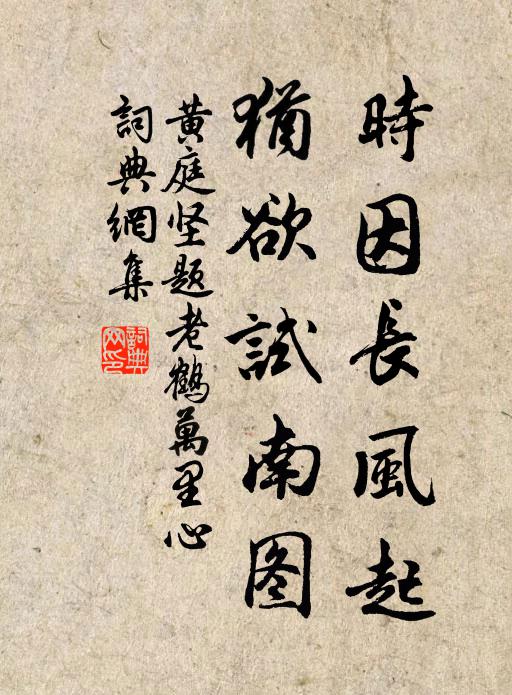 時因長風起
猶欲試南图
黄庭坚题老鶴萬里心
詞典網集
詞典網印